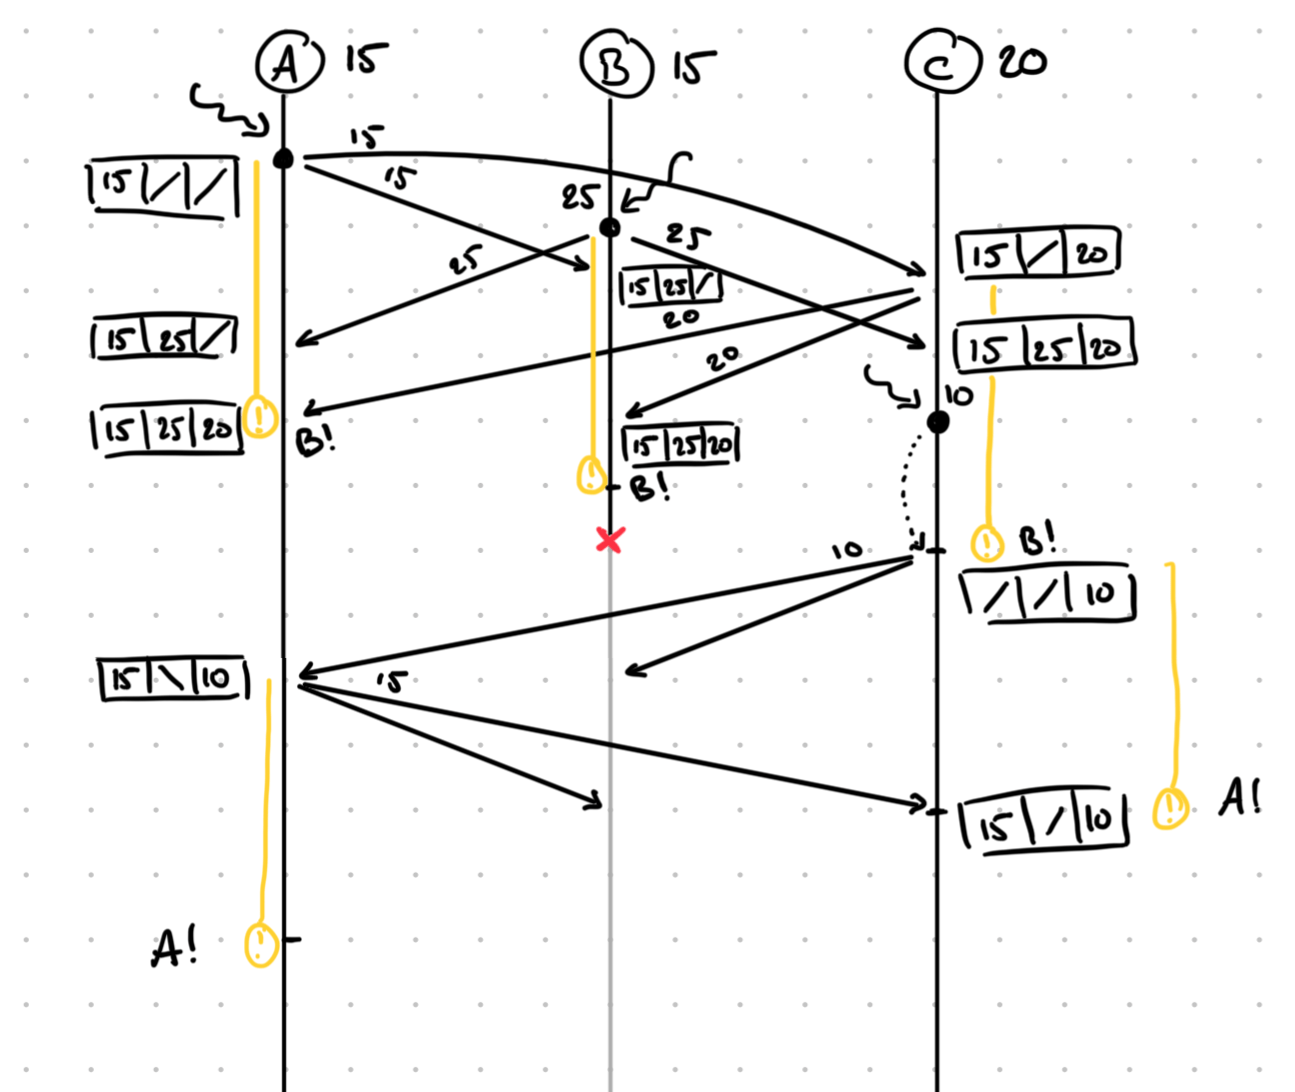 A 15
B 15
C 20
15
15
15 / /
25
25
25
15 / 20
15 25 /
20
15 25 /
15 25 20
20
10
15 25 20 !
B!
15 25 20
! B!
10
! B!
/ / 10
15 \ 10
15
15 / 10
! A!
A! !